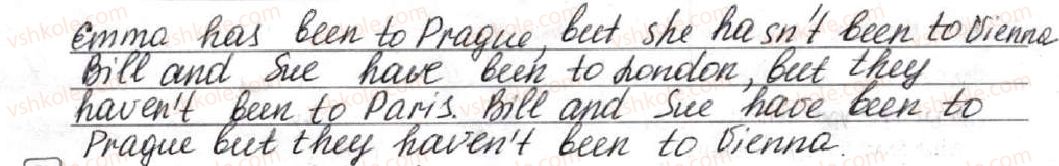 Emma has been to Prague, but she hasn't been to Vienna
Bill and Sue have been to London, but they
haven't been to Paris. Bill and Sue have been to
Prague but they haven't been to Vienna.